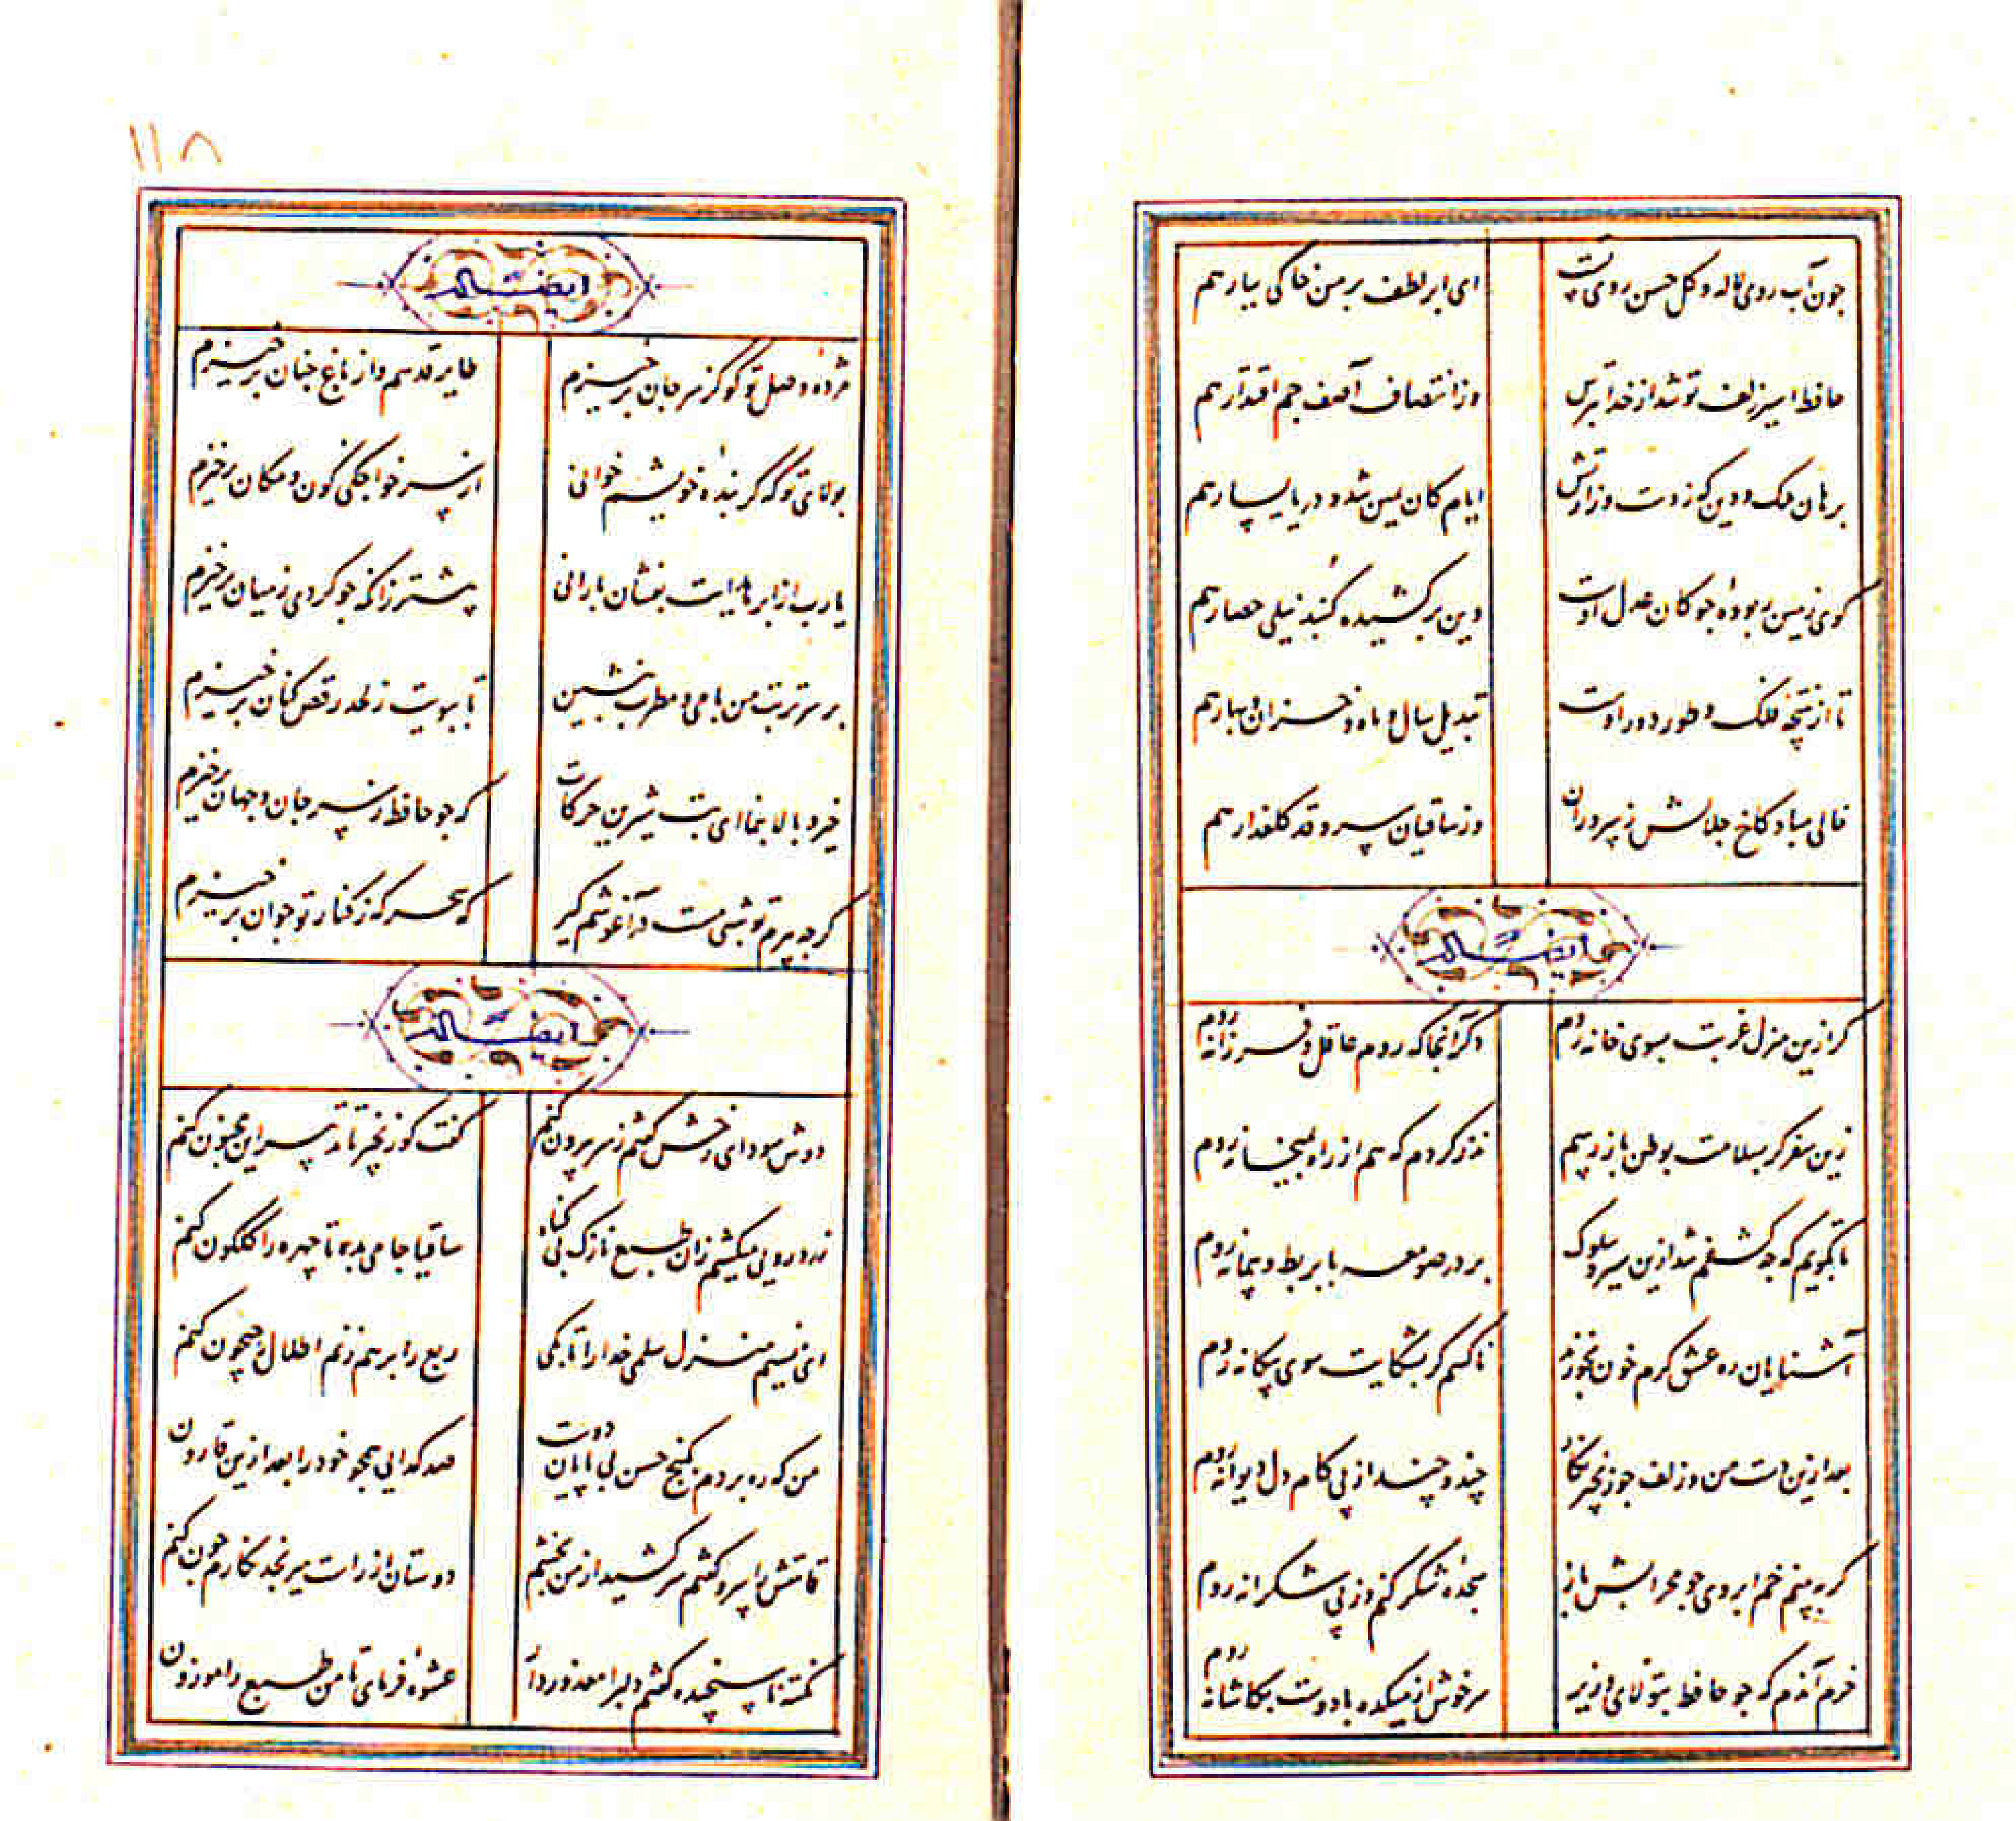 چون آب روی لاله و گل حسن روی تست
ای ابر لطف بر من خاکی ببار هم
حافظ اسیر زلف تو شد از خدا بترس
وز انتصاف آصف جم اقتدار هم
برهان ملک و دین که ز دست وزارتش
ایام کان یمین شد و دریا یسار هم
کوی زمین ربوده چوکان عدل اوست
وین برکشیده کنبد نیلی حصار هم
تا از نتیجه فلک و طور دور اوست
تبدیل سال و ماه و خزان و بهار هم
خالی مباد کاخ جلالش ز سروران
وز ساقیان سرو قد کلعذار هم
ایضا له
کر ازین منزل غربت بسوی خانه روم
دکر آنجا که روم عاقل و فرزانه روم
زین سفر کر بسلامت بوطن باز رسم
نذر کردم که هم از راه بمیخانه روم
تا بکویم که چه کشفم شد ازین سیر و سلوک
بر در صومعه با بربط و پیمانه روم
آشنایان ره عشق کرم خون بخورند
ناکسم کر بشکایت سوی بیکانه روم
بعد ازین دست من و زلف چو زنجیر نکار
چند و چند از پی کام دل دیوانه روم
کر ببینم خم ابروی چو محرابش باز
سجده شکر کنم وز پی شکرانه روم
خرم آندم که چو حافظ بتولای وزیر
سرخوش از میکده با دوست بکاشانه روم
۱۱۸
ایضا له
مژده وصل تو کو کز سر جان برخیزم
طایر قدسم و از باغ جنان برخیزم
بولای تو که کر بنده خویشم خوانی
از سر خواجکی کون و مکان برخیزم
یارب از ابر هدایت بفشان بارانی
پیشتر زانکه چو کردی ز میان برخیزم
بر سر تربت من با می و مطرب بنشین
تا ببویت ز لحد رقص کنان برخیزم
خیز و بالا بنما ای بت شیرین حرکات
که چو حافظ ز سر جان و جهان برخیزم
کرچه پیرم تو شبی مست در آغوشم کیر
که سحرکه ز کنار تو جوان برخیزم
ایضا له
دوش سودای رخش کفتم ز سر بیرون کنم
کفت کو زنجیر تا تدبیر این مجنون کنم
زرد رویی میکشم زان طبع نازک بی کناه
ساقیا جامی بده تا چهره را کلکون کنم
ای نسیم منزل سلمی خدا را تا بکی
ربع را برهم زنم اطلال را جیحون کنم
من که ره بردم بکنج حسن بی پایان دوست
صد کدایی همچو خود را بعد ازین قارون
قامتش را سرو کفتم سر کشید از من بخشم
دوستان از راست میرنجد نکارم چون کنم
نکته ناسنجیده کفتم دلبرا معذور دار
عشوه فرمای تا من طبع را موزون